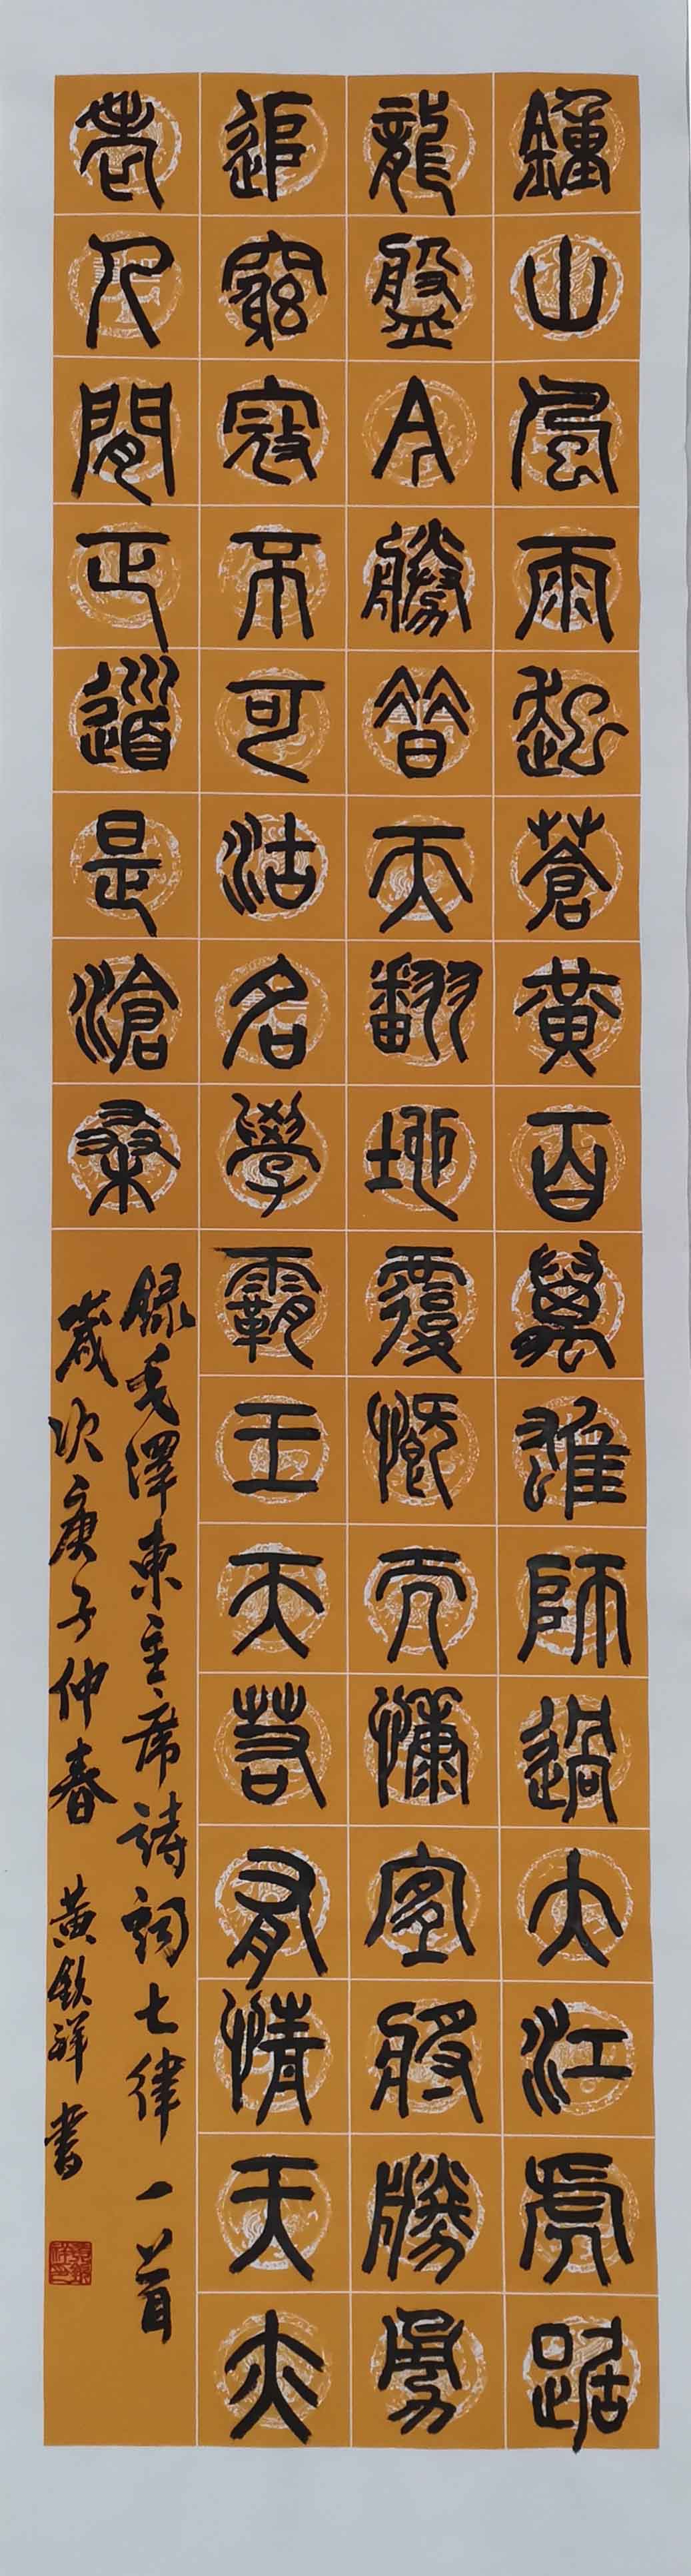 鍾山風雨起蒼黃百萬雄師過大江虎踞
龍盤今勝昔天翻地覆慨而慷宜將勝勇
追窮寇不可沽名學霸王天若有情天亦
老人間正道是滄桑
錄毛澤東主席詩詞七律一首
歲次庚子仲春 黃欽祥書